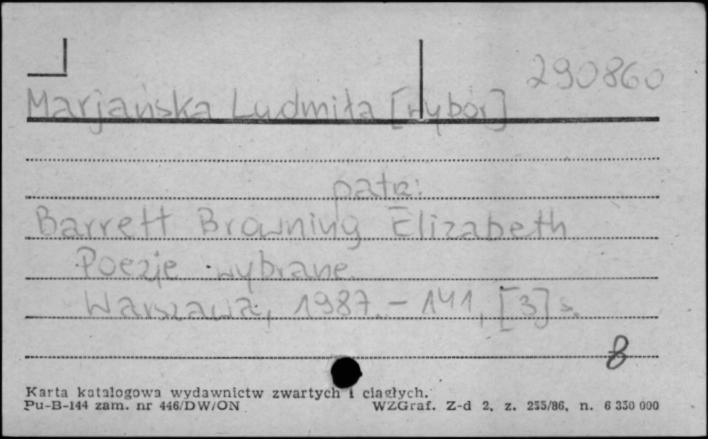 290860
Marjańska Ludmiła [wybór]
patrz:
Barrett Browning Elizabeth
Poezje wybrane
Warszawa, 1987. - 141, [3] s.
B
Karta katalogowa wydawnictw zwartych i ciągłych.
Pu-B-144 zam. nr 446/DW/ON WZGraf. Z-d 2, z. 255/86, n. 6 350 000